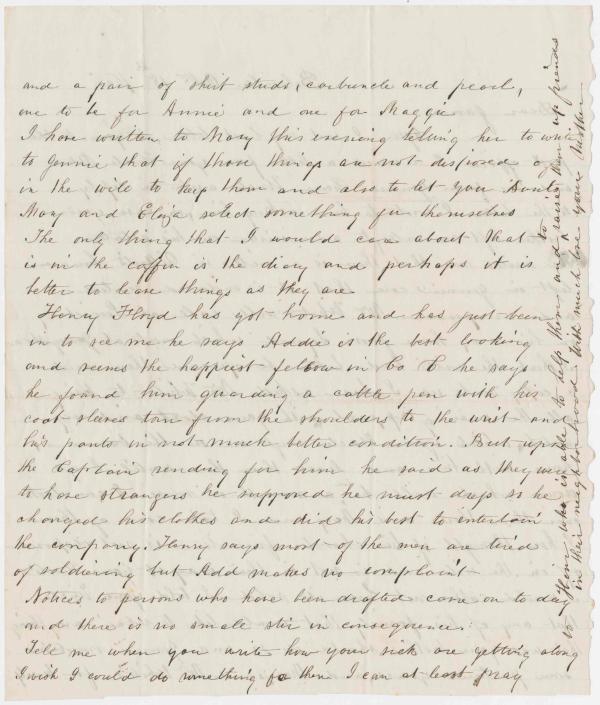 and a pair of shirt studs, carbuncle and pearl,
one to be for Annie and one for Maggie
I have written to Mary this evening telling her to write
to Jennie that if those things are not disposed of
in the will to keep them and also to let you Aunt
Mary and Eliza select something for themselves
The only thing that I would care about that
is in the coffin is the diary and perhaps it is
better to leave things as they are
Henry Floyd has got home and has just been
in to see me he says Addie is the best looking
and seems the happiest fellow in Co C he says
he found him guarding a cattle pen with his
coat sleaves torn from the shoulders to the wrist and
his pants in not much better condition. But upon
the Captain sending for him he said as they were
to have strangers he supposed he must dress so he
changed his clothes and did his best to intertain
the company. Henry says most of the men are tired
of soldiering but Add makes no complaint
Notices to persons who have been drafted came on to day
and there is no small stir in consequence.
Tell me when you write how your sick are getting along
I wish I could do something for them I can at least pray
to Him who is able to help them and to raise them up friends
in their neighborhood With much love your Mother